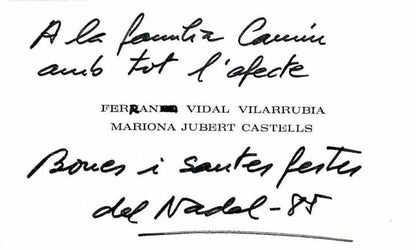 A la familia Camin
amb tot l'afecte
FERRAN VIDAL VILARRUBIA
MARIONA JUBERT CASTELLS
Bones i santes festes
del Nadal - 85